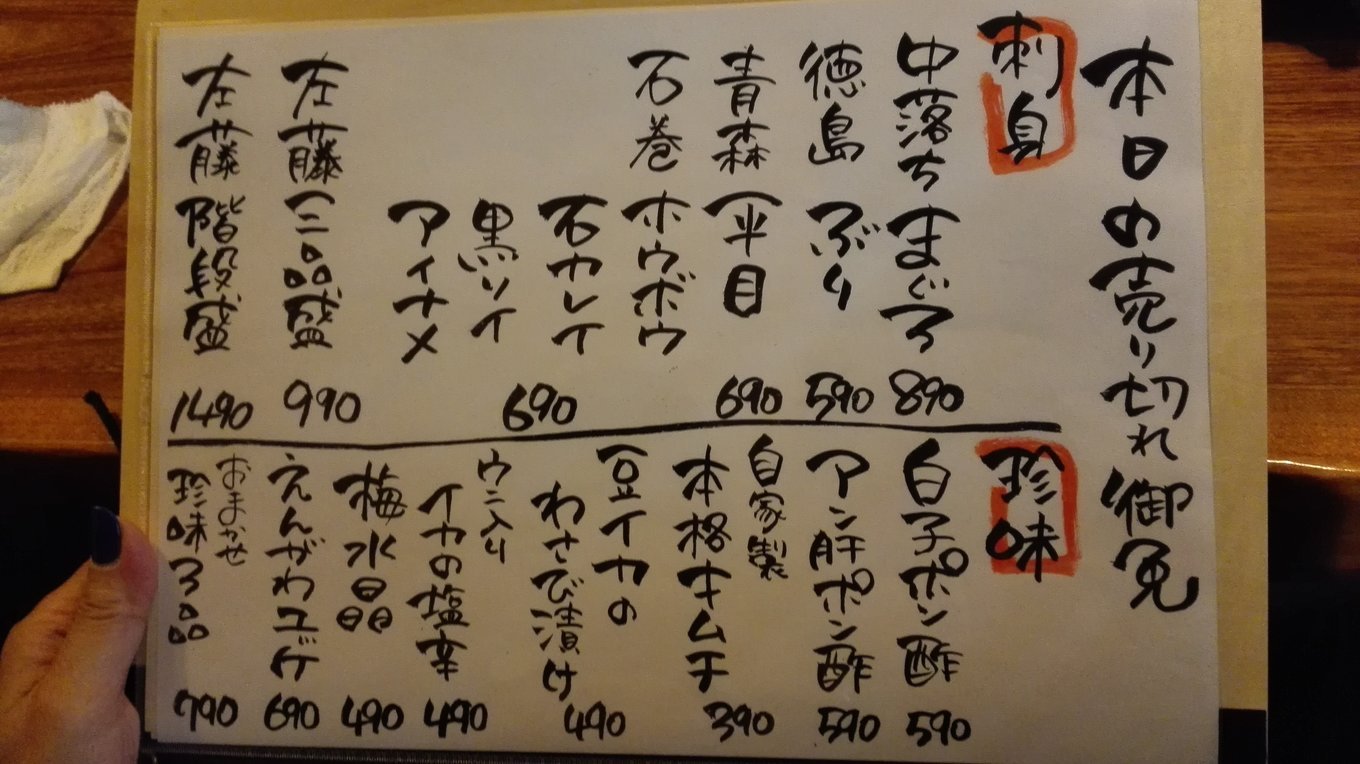 本日の売り切れ御免
刺身
中落ちまぐろ 890
徳島 ぶり 590
青森 平目 690
石巻 ホウボウ
石カレイ
黒ソイ
アイナメ
690
左藤 三品盛 990
左藤 階段盛 1490
珍味
白子ポン酢 590
アン肝ポン酢 590
自家製
本格キムチ 390
豆イカの
わさび漬け 490
ウニ入り
イカの塩辛 490
梅水晶 490
えんがわユッケ 690
おまかせ
珍味3品 790